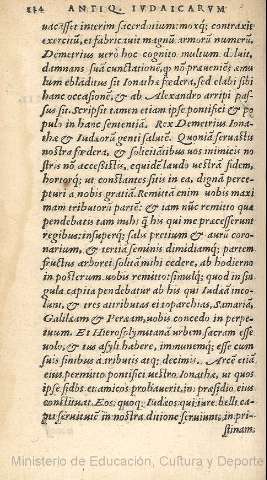 334 ANTIQ. IVDAICARVM
uacasset interim sacerdotium: moxq; contraxit
exercitũ, et fabricauit magnũ armorũ numerũ.
Demetrius uerò hoc cognito multum doluit,
damnans suã cunctationẽ, qd nõ præuenies æmu
lum eblāditus sit Ionathæ fœdera, sed elabi sibi
hanc occasionẽ, & ab Alexandro arripi pas-
sus sit. Scripsit tamen etiam ipse pontifici & po
pulo in hanc sententiã. Rex Demetrius Iona-
thæ & Iudæorũ genti salutẽ. Quoniã seruastis
nostra fœdera, & solicitãtibus uos inimicis no
stris nõ accessistis, equidẽ laudo uestrã fidem,
hortorq; ut constantes sitis in ea, dignã perce-
pturi a nobis gratiã. Remittã enim uobis maxi
mam tributorũ partẽ: & iam nũc remitto quæ
pendebatis tam mihi q̃ his qui me præcesserunt
regibus: insuperq; salis pretium & aurũ coro-
narium, & tertiã seminis dimidiamq; partem
fructus arborei solitã mihi cedere, ab hodierno
in posterum uobis remitto: simulq; quod in sin
gula capita pendebatur ab his qui Iudæã inco-
lunt, & tres attributas ei toparchias, Samariã,
Galilæam & Peræam, uobis concedo in perpe-
tuum. Et Hierosolymitanã urbem sacram esse
uolo, & ius asyli habere, immunemq; esse cum
suis finibus a tributis atq; decimis. Arcẽ etiã
eius permitto pontifici uestro Ionathæ, ut quos
ipse fidos et amicos probauerit, in præsidio eius
constituat. Eos quoq; Iudæos qui iure belli ca-
pti seruiũt in nostra ditione seruiunt, in pri-
stinam
Ministerio de Educación, Cultura y Deporte